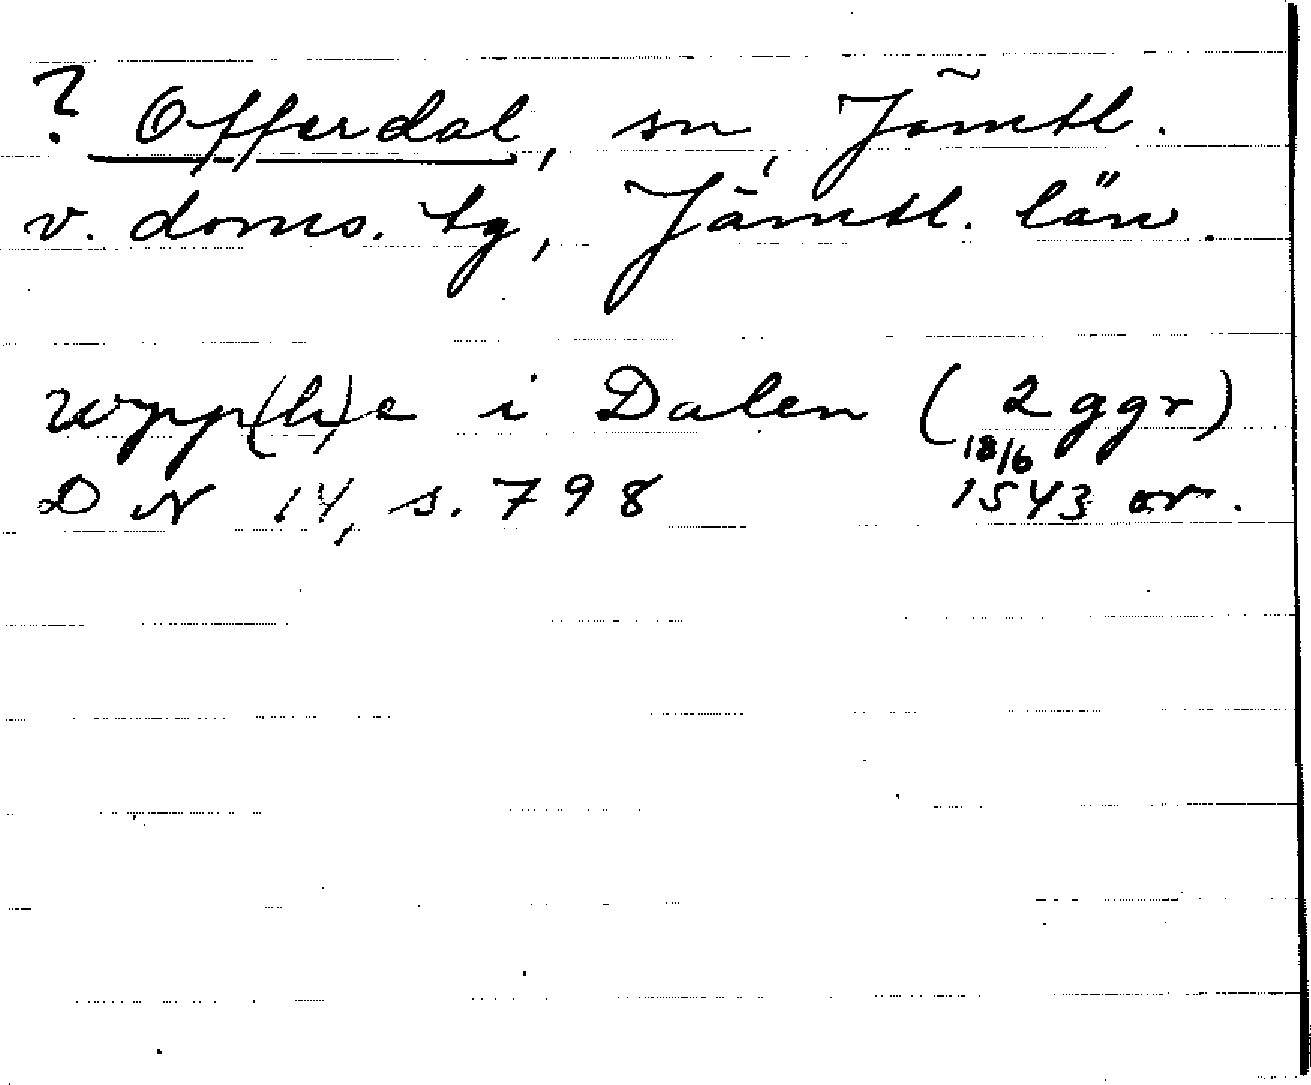 ? Offerdal, sn, Jämtl.
v. doms. tg, Jämtl. län.
wpp(h)e i Dalen (2 ggr)
18/6
DN 14, s. 798 1543 or.